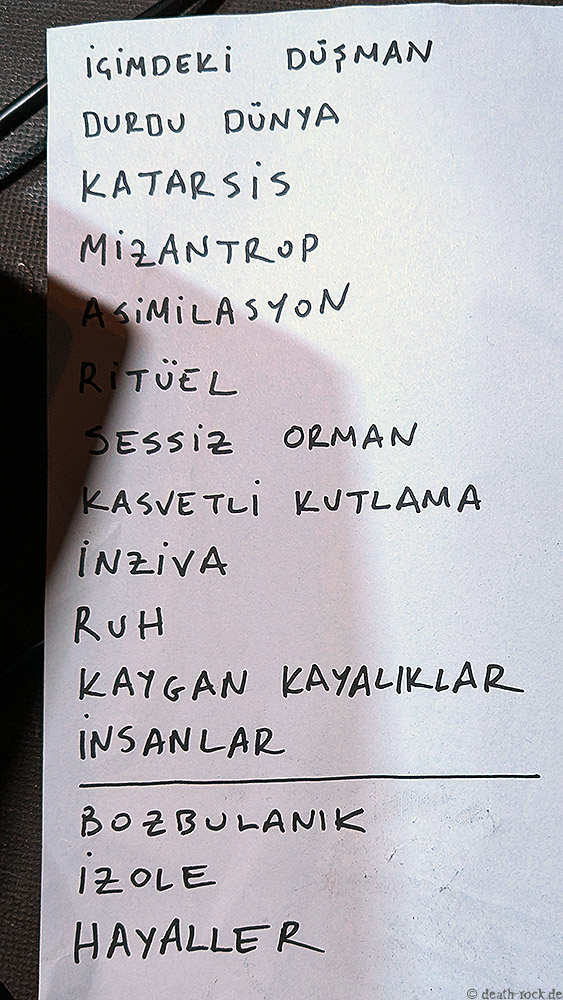 İÇİMDEKİ DÜŞMAN
DURDU DÜNYA
KATARSİS
MİZANTROP
ASİMİLASYON
RİTÜEL
SESSİZ ORMAN
KASVETLİ KUTLAMA
İNZİVA
RUH
KAYGAN KAYALIKLAR
İNSANLAR
BOZBULANIK
İZOLE
HAYALLER
© death-rock.de